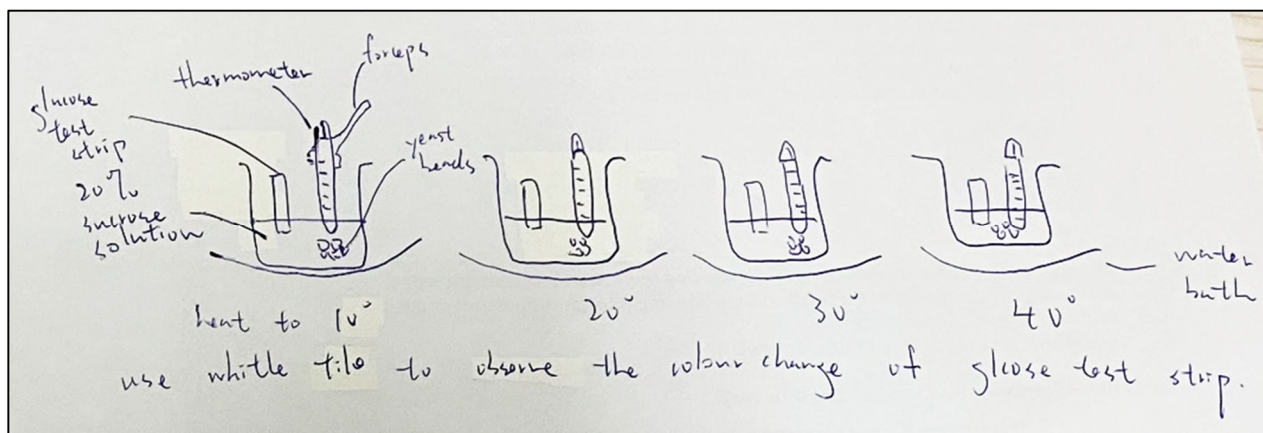 forceps
thermometer
glucose
test
strip
20%
sucrose
solution
yeast
beads
water
bath
heat to 10°
20°
30°
40°
use whitle tile to observe the colour change of glcose test strip.